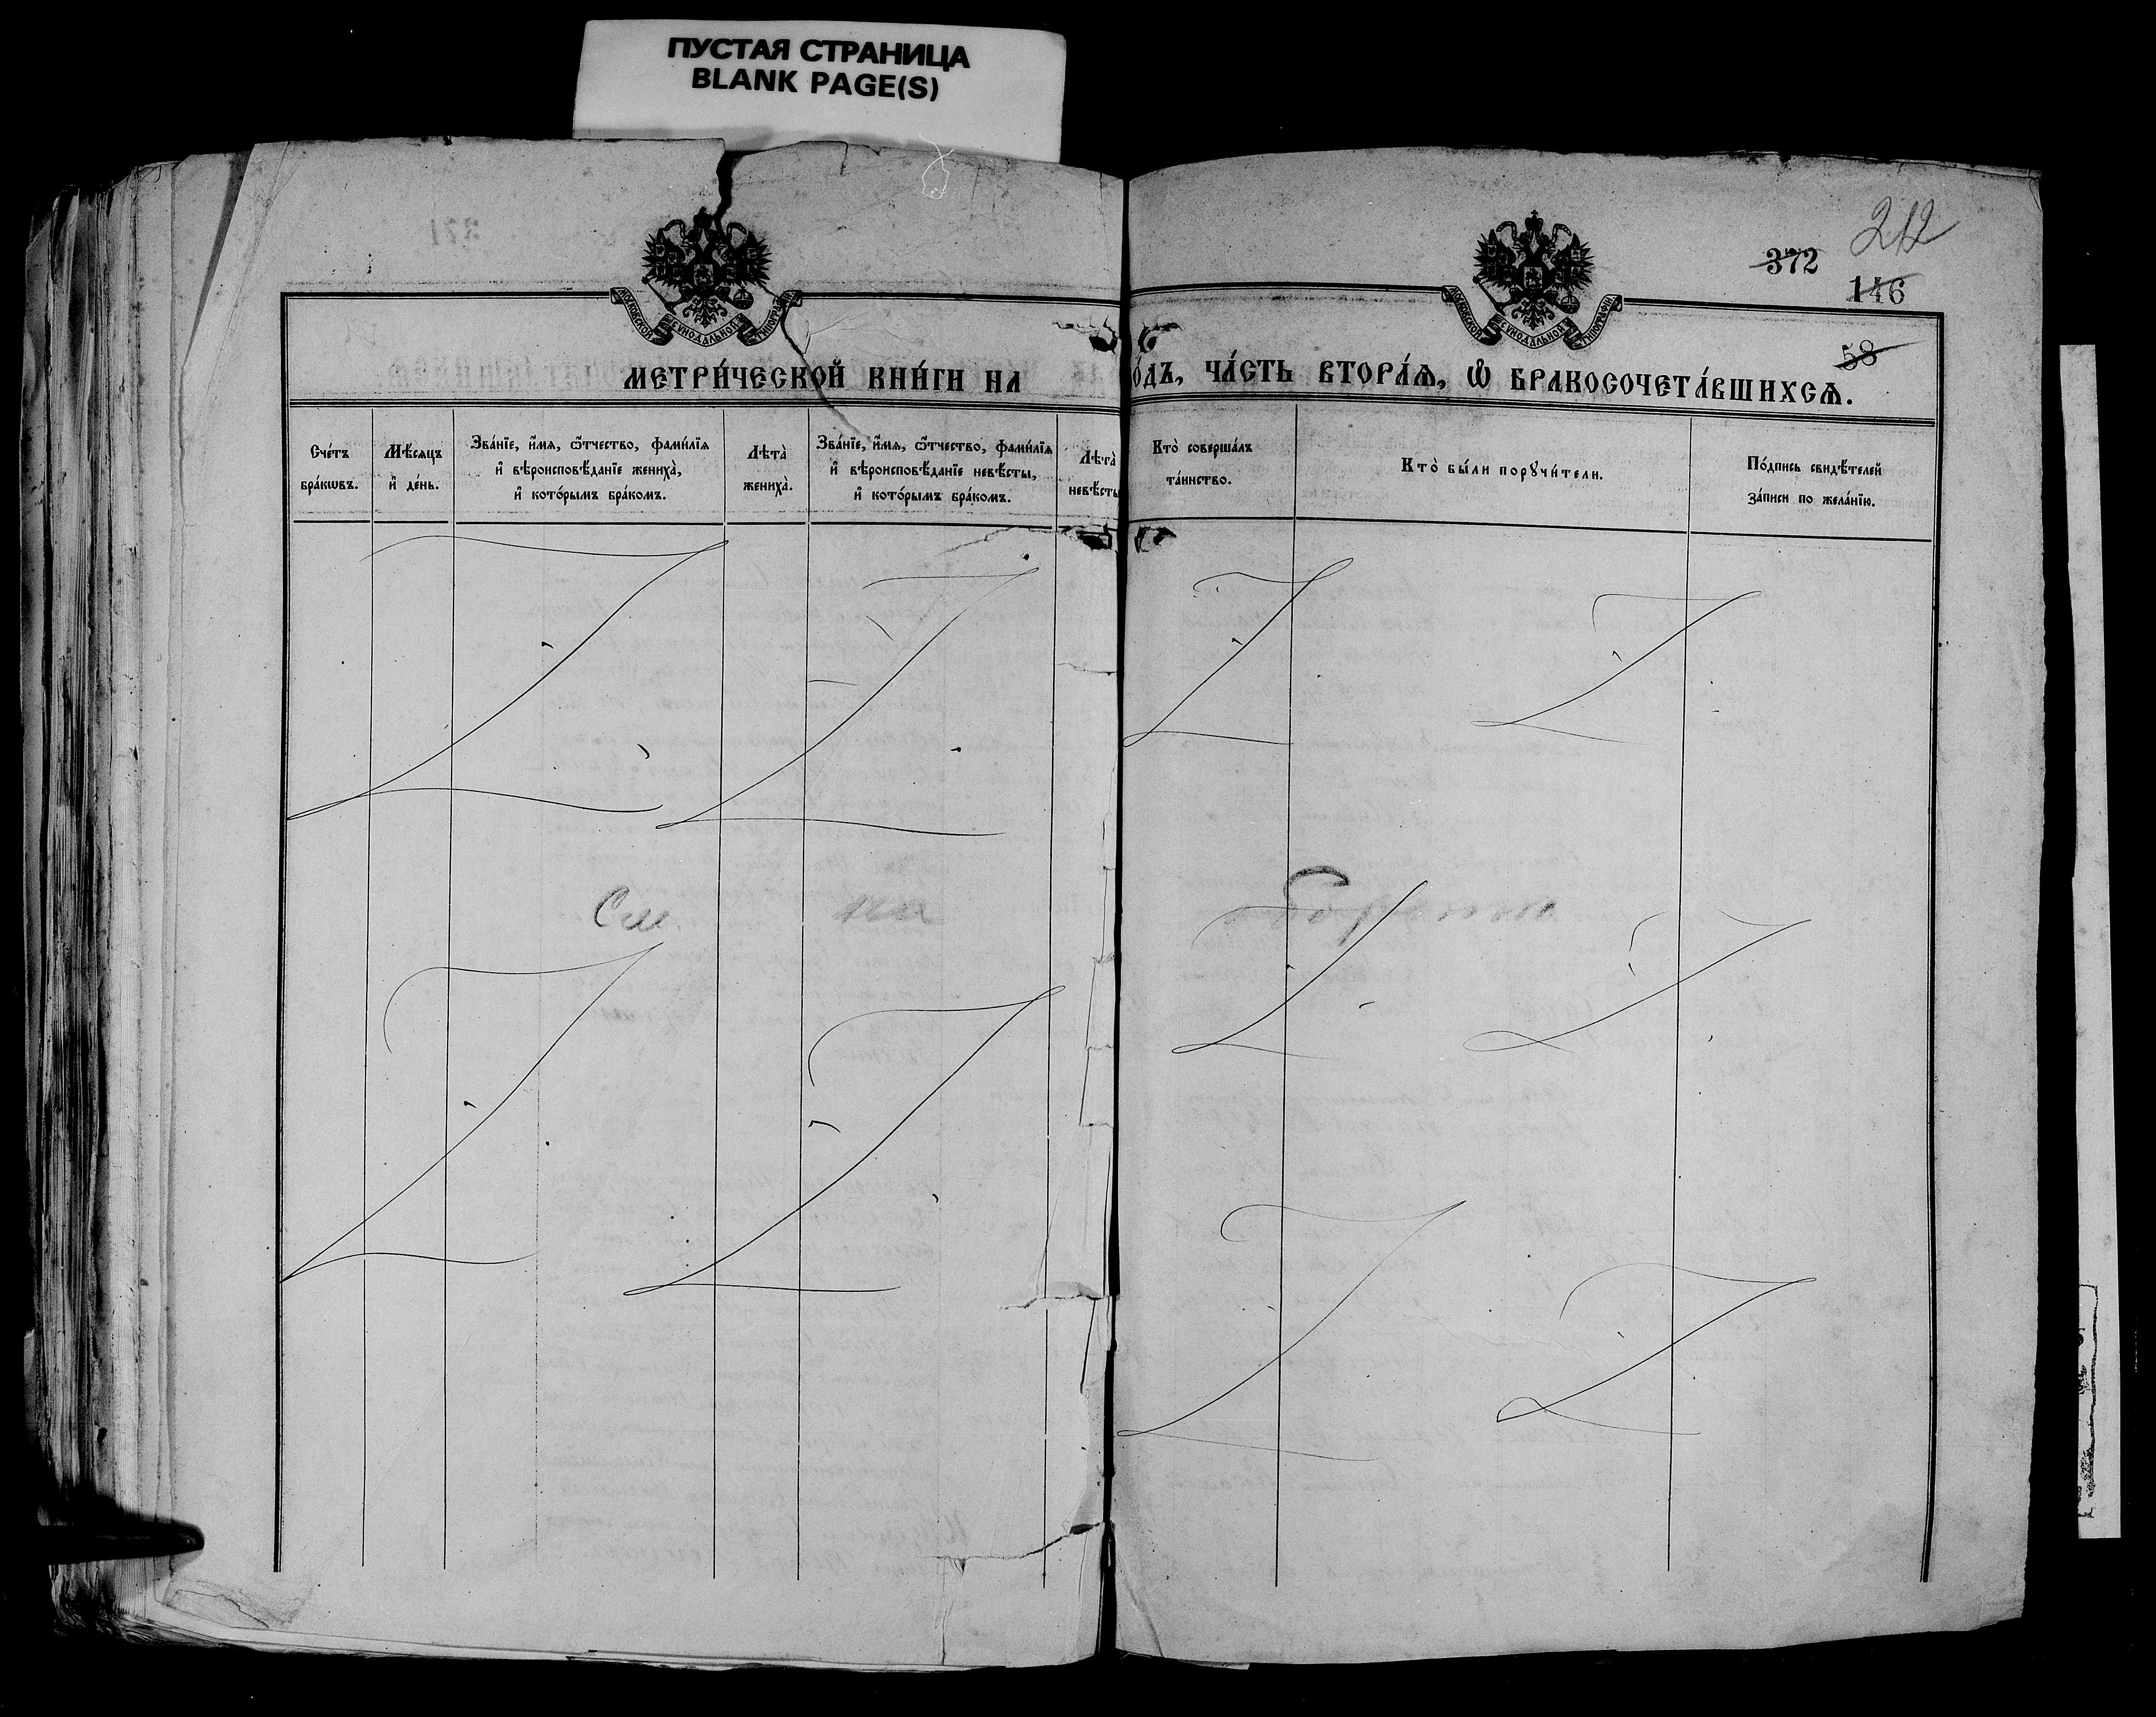 ПУСТАЯ СТРАНИЦА
BLANK PAGE(S)
212
372
146
58
МОСКОВСКОЙ СѴНОДАЛЬНОЙ ТИПОГРАФІИ
МОСКОВСКОЙ СѴНОДАЛЬНОЙ ТИПОГРАФІИ
МЕТРИ́ЧЕСКОЙ КНИ́ГИ НА ОДЪ, ЧА́СТЬ ВТОРА́Ѧ, Ѽ БРАКОСОЧЕТА́ВШИХСѦ.
Сче́тъ
бра́кѡвъ.
Мѣ́сѧцъ
и҆ де́нь.
Зва́нїе, и҆́мѧ, ѻ҆́тчество, фами́лїѧ
и҆ вѣроисповѣ́данїе жениха̀,
и҆ кото́рымъ бра́комъ.
Лѣта̀
жениха̀.
Зва́нїе, и҆́мѧ, ѻ҆́тчество, фами́лїѧ
и҆ вѣроисповѣ́данїе невѣ́сты,
и҆ кото́рымъ бра́комъ.
Лѣта̀
невѣ́сты
Кто̀ соверша́лъ
та́инство.
Кто̀ бы́ли порꙋчи́тели.
По́дпись свидѣ́телей
за́писи по жела́нїю.
См. на обороте